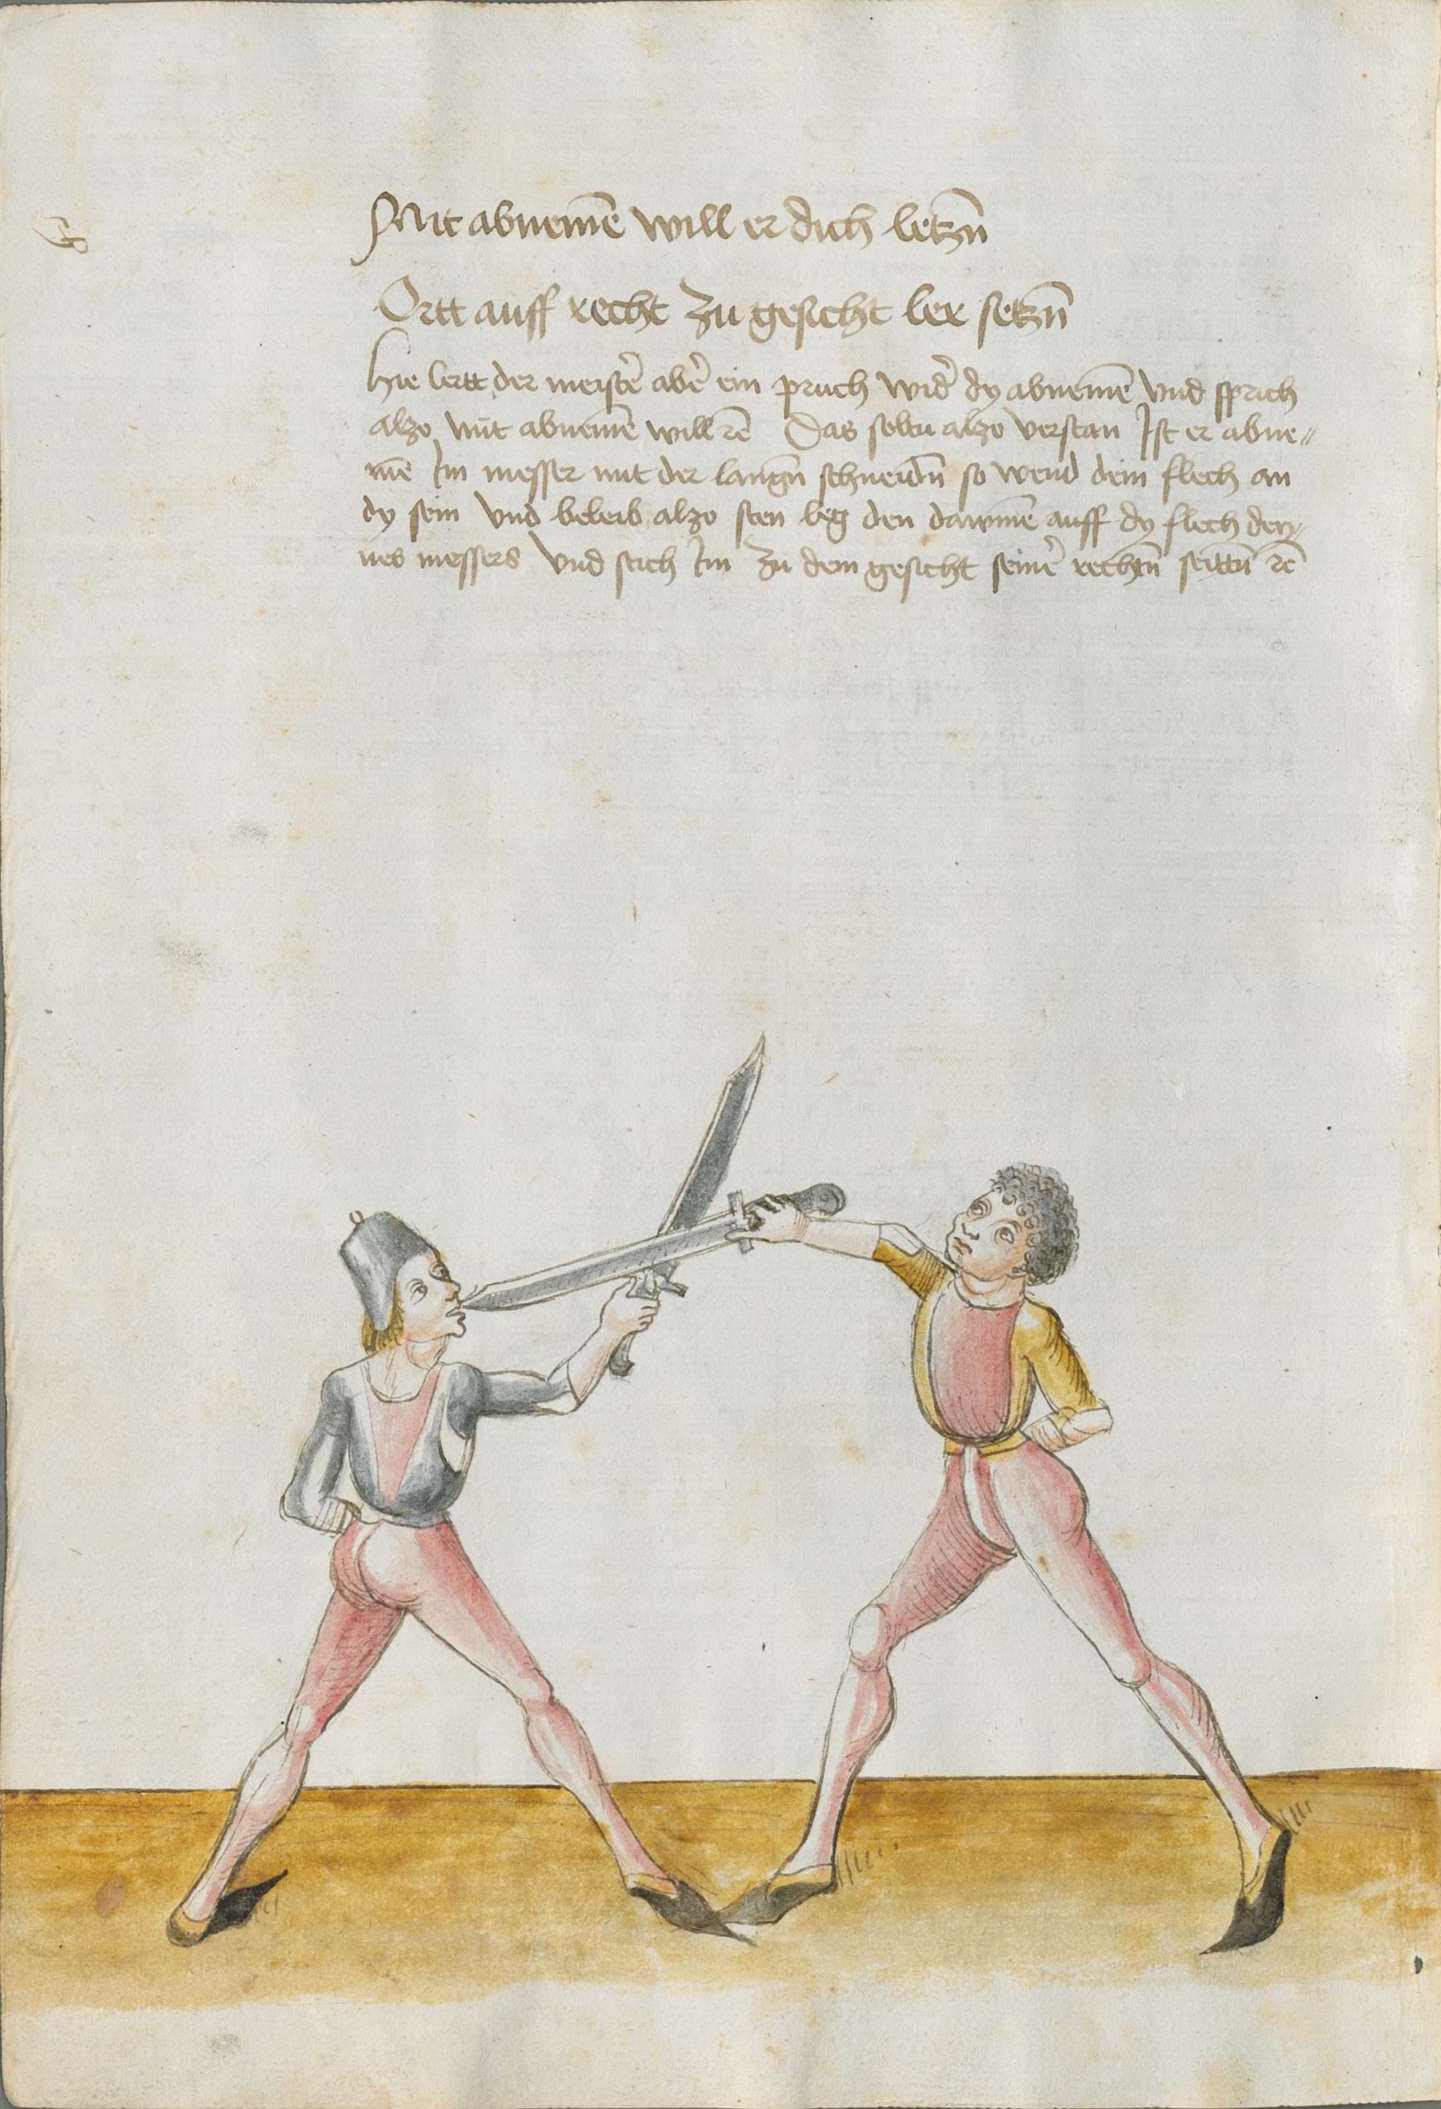 Mit abnemē will er dich letzn̄
Ortt auff recht zu gesicht ler setzn̄
Hie lertt der meistẽ abẽ ein pruch widẽ dy abnemē vnd sprich
alzo mit abnemē will rc̄ Das soltu alzo verstan Ist er abne⸗
mē Im messer mit der langn̄ schneidn̄ so wend dein flech an
dy sein vnd beleib alzo sten leg den dawmē auff dy flech dey⸗
nes messers vnd stich Im zu dem gesicht seinẽ rechtn̄ seittn̄ rc̄